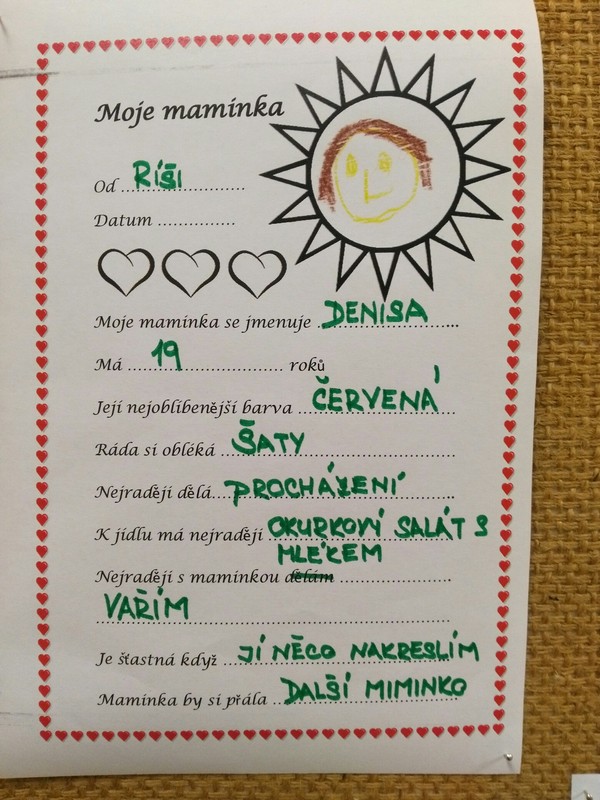 Moje maminka
Od RÍŠI
Datum
Moje maminka se jmenuje DENISA
Má 19 roků
Její nejoblíbenější barva ČERVENÁ
Ráda si obléká ŠATY
Nejraději dělá PROCHÁZENÍ
K jídlu má nejraději OKURKOVÝ SALÁT S
MLÉKEM
Nejraději s maminkou dělám
VAŘÍM
Je šťastná když JÍ NĚCO NAKRESLÍM
Maminka by si přála DALŠÍ MIMINKO